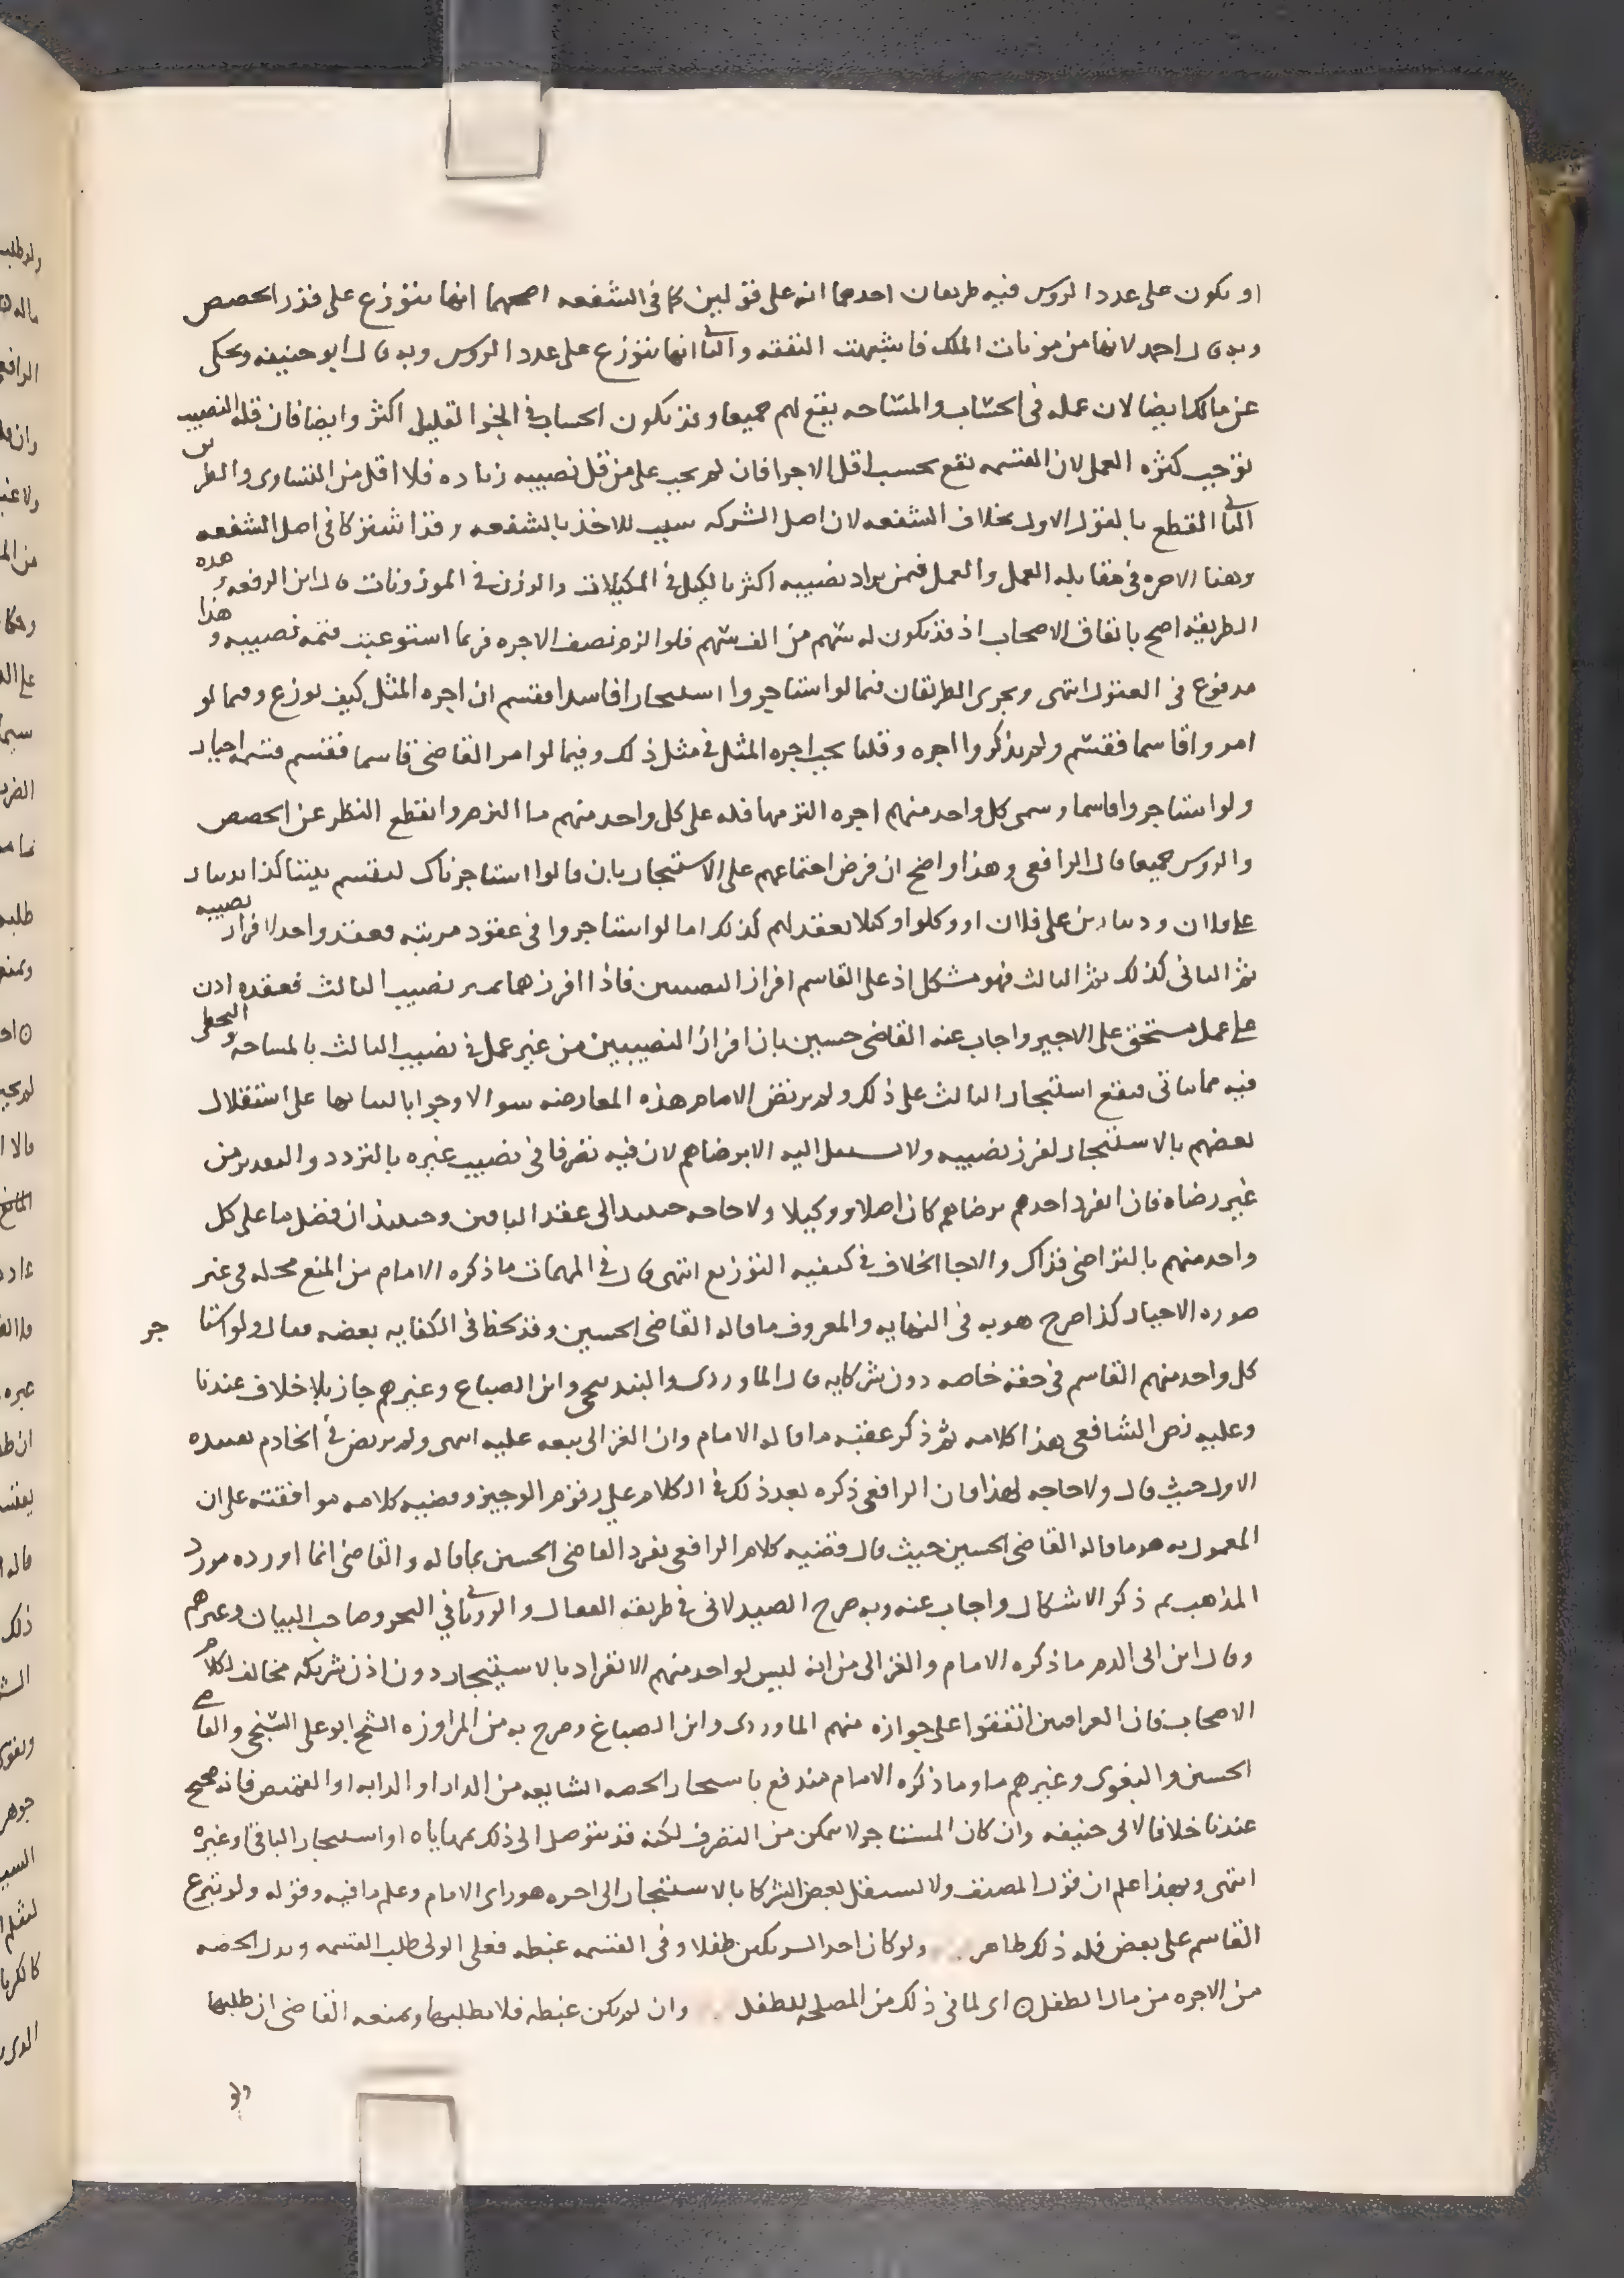 او يكون على عدد الروس فيه طريقان احدهما انه على قولين كما في الشفعه اصحهما انها تتوزع على قدر الحصص
وبه قال احمد لانها من مونات الملك فاشبهت النفقه والثاني انها تتوزع على عدد الروس وبه قال ابو حنيفه وحكي
عن مالك ايضا لان عمله في الحساب والمساحه يقع لهم جميعا وقد يكون الحساب في الجزء القليل اكثر وايضا فان قله النصيب
توجب كثره العمل لان القسمه تقع بحسب اقل الاجزا فان لم يجب على من قل نصيبه زياده فلا اقل من التساوى والطريق
الثاني القطع بالقول الاول بخلاف الشفعه لان اصل الشركه سبب للاخذ بالشفعه وقد اشتركا في اصل الشفعه
وهنا الاجره في مقابله العمل والعمل فمن يزاد نصيبه اكثر بالكيل في المكيلات والوزن في الموزونات قال ابن الرفعه وهذه
الطريقه اصح باتفاق الاصحاب اذ قد يكون له سهم من الف سهم فلو الزم نصف الاجره فربما استوعبت قيمه نصيبه وهذا
مدفوع في العقول انتهى ويجرى الطريقان فيما لو استاجروا استيجارا فاسدا فقسم ان اجره المثل كيف توزع وفيما لو
امروا قاسما فقسم ولم يذكروا اجره وقلنا يجب اجره المثل في مثل ذلك وفيما لو امر القاضي قاسما فقسم قسمه اجبار
ولو استاجروا قاسما وسمى كل واحد منهم اجره التزمها فله على كل واحد منهم ما التزم وانقطع النظر عن الحصص
والروس جميعا قال الرافعي وهذا واضح ان فرض اجتماعهم على الاستيجار بان قالوا استاجرناك لتقسم بيننا كذا بدينار
على فلان ودينارين على فلان او وكلوا وكيلا يعقد لهم كذلك اما لو استاجروا في عقود مرتبه فعقد واحد لافراز نصيبه
ثم الثاني كذلك ثم الثالث فهو مشكل اذ على القاسم افراز النصيبين فاذا افرزهما تميز نصيب الثالث فعقده اذن
على عمل مستحق على الاجير واجاب عنه القاضي حسين بان افراز النصيبين من غير عمل في نصيب الثالث بالمساحه والتخطي
فيه مما ياتي فيقع استيجار الثالث على ذلك ولم يرتض الامام هذه المعارضه سوالا وجوابا لبنائها على استقلال
بعضهم بالاستيجار لفرز نصيبه ولا سبيل اليه الا برضاهم لان فيه تصرفا في نصيب غيره بالتردد والتقدير من
غير رضاه فان انفرد احدهم برضاهم كان اصلا ووكيلا ولا حاجه حينيد الى عقد الباقين وحينيذ ان فصل ما على كل
واحد منهم بالتراضي فذاك والا جا الخلاف في كيفيه التوزيع انتهى قال في المهمات ما ذكره الامام من المنع محله في غير
صوره الاجبار كذا صرح هو به في النهايه والمعروف ما قاله القاضي الحسين وقد لحظ في الكفايه بعضه فقال ولو استاجر
كل واحد منهم القاسم في حقه خاصه دون شركايه قال الماوردى والبندنيجي وابن الصباغ وغيرهم جاز بلا خلاف عندنا
وعليه نص الشافعي هذا كلامه ثم ذكر عقبه ما قاله الامام وان الغزالى تبعه عليه انتهى ولم يرتض في الخادم تقييده
الاول حيث قال ولا حاجه لهذا فان الرافعي ذكره بعد ذلك في الكلام على رقوم الوجيز وقضيه كلامه موافقته على ان
المعمول به هو ما قاله القاضي الحسين حيث قال قضيه كلام الرافعي تفرد القاضي الحسين بما قاله والقاضي انما اورده مورد
المذاهب ثم ذكر الاشكال واجاب عنه وبه صرح الصيدلاني في طريقه القفال والروياني في البحر وصاحب البيان وغيرهم
وقال ابن ابى الدم ما ذكره الامام والغزالى من انه ليس لواحد منهم الانفراد بالاستيجار دون اذن شريكه مخالف لكلام
الاصحاب فان العراقيين اتفقوا على جوازه منهم الماوردى وابن الصباغ وصرح به من المراوزه الشيخ ابو على السنجي والقاضي
الحسين والبغوى وغيرهم وما ذكره الامام مندفع باستيجار الحصه الشايعه من الدار او الدابه او القميص فانه صحيح
عندنا خلافا لابى حنيفه وان كان المستاجر لا يتمكن من التصرف لكنه قد يتوصل الى ذلك بمهاياه او استيجار الباقي او غيره
انتهى وبهذا علم ان قول المصنف ولا يستقل بعض الشركا بالاستيجار الى اخره هو راى الامام وعلم ما فيه وقوله ولو تبرع
القاسم على بعض فله ذلك ظاهر ولو كان احد الشريكين طفلا وفي القسمه غبطه فعلى الولى طلب القسمه وبذل الحصه
من الاجره من مال الطفل ۞ اى لما في ذلك من المصلحه للطفل وان لم يكن غبطه فلا يطلبها ويمنعه القاضي ان طلبها
ولو